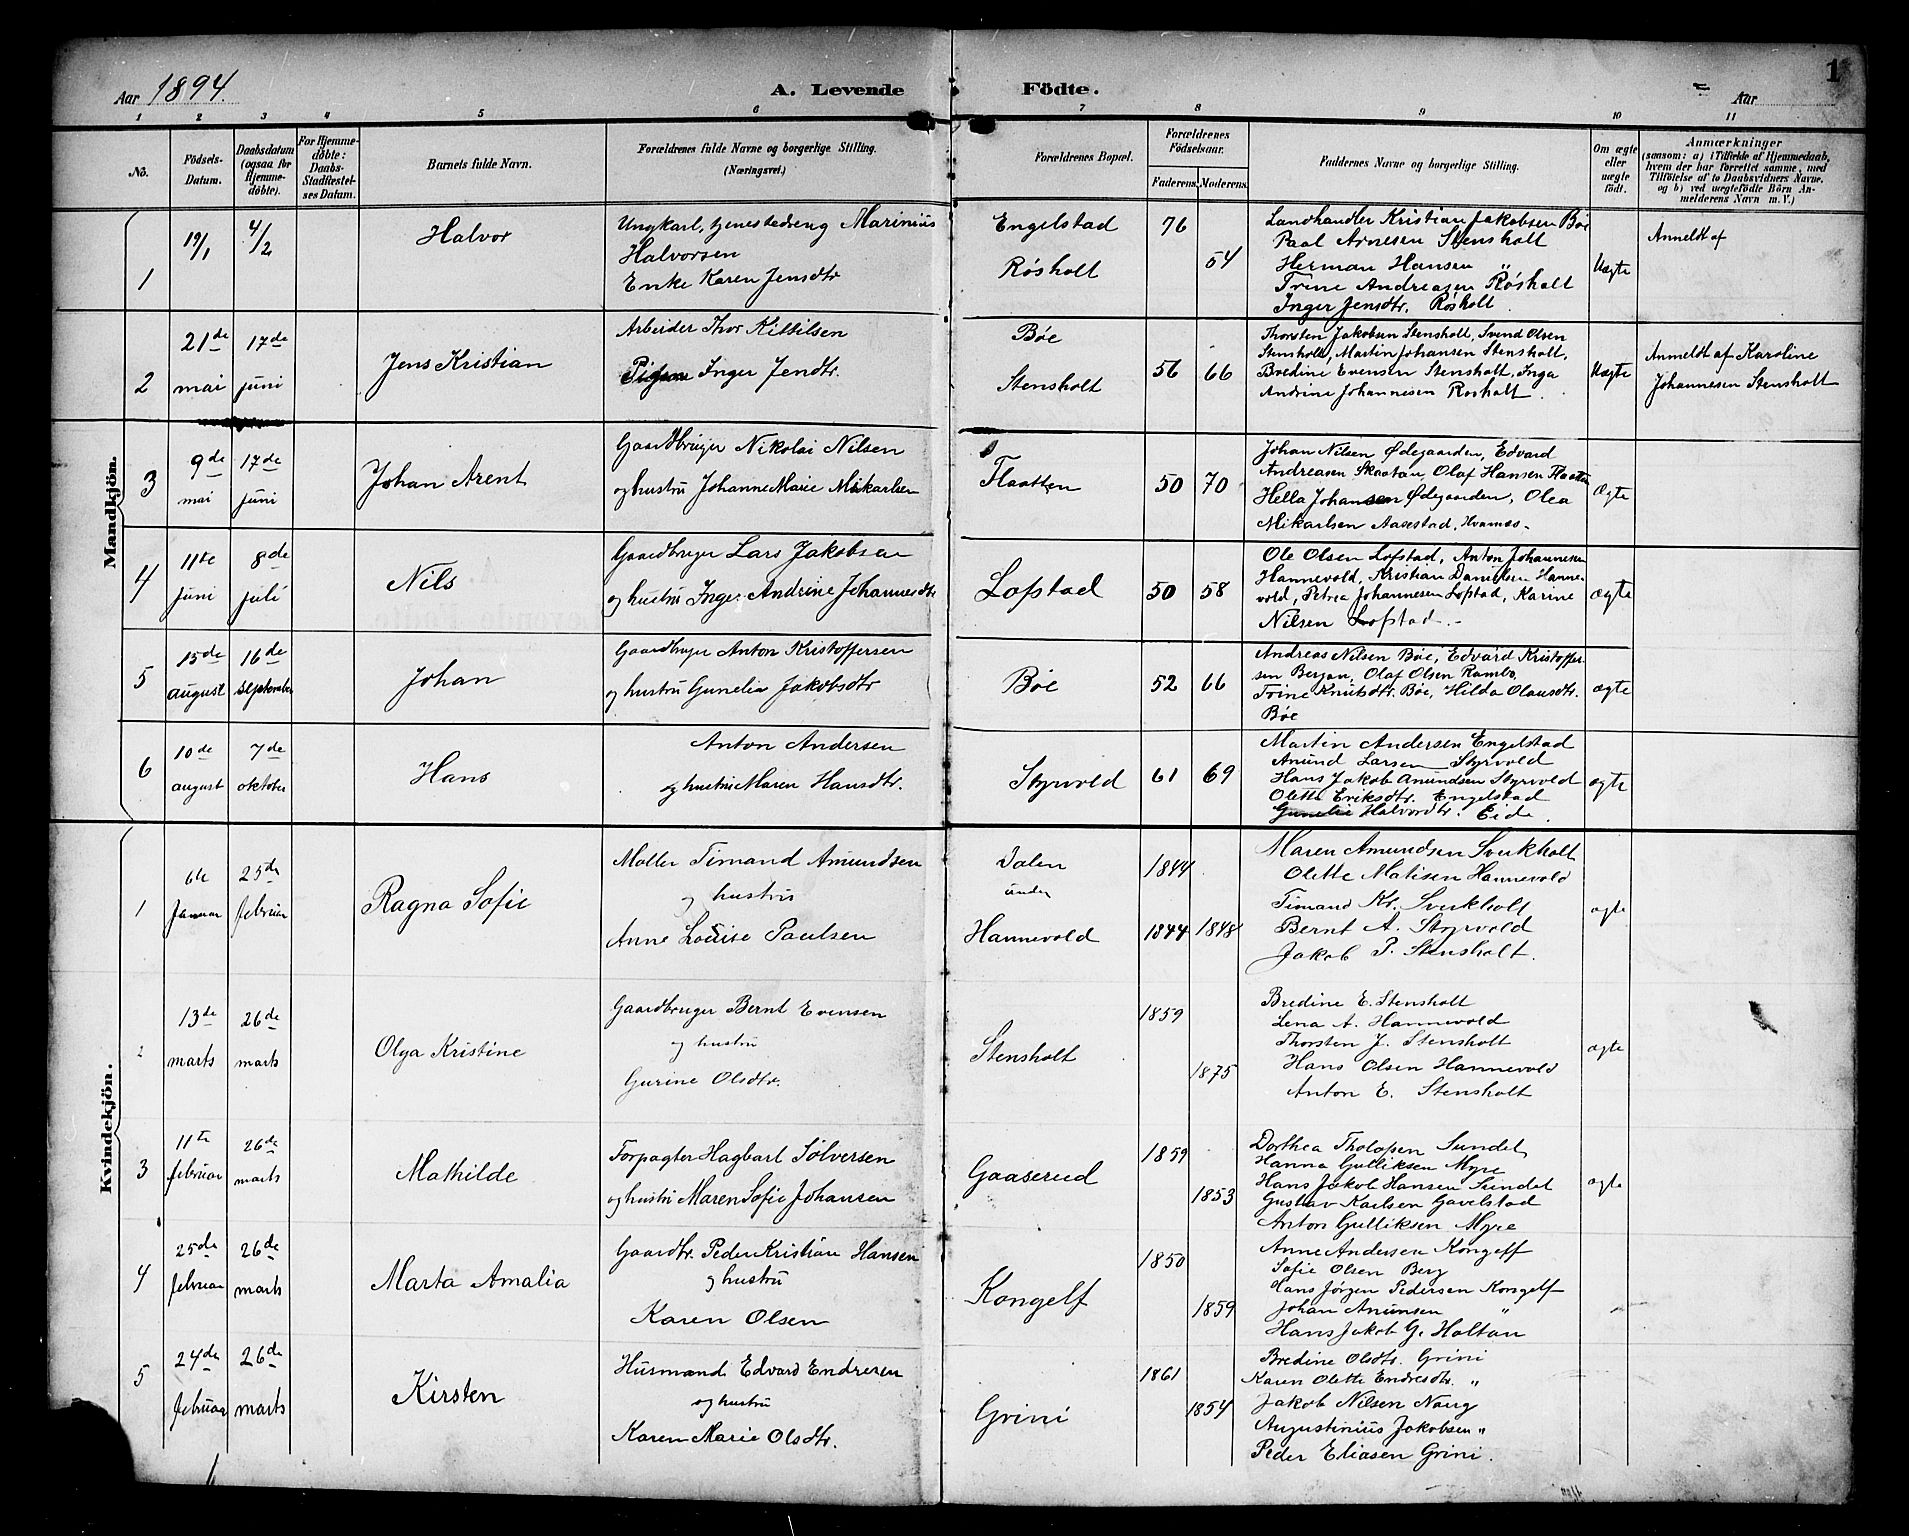 Aar 1894.
A. Levende Födte.
Aar
1
1 2 3 4 5 6 7 8 9 10 11
No.
Födsels-Datum.
Daabsdatum (ogsaa for Hjemmedöbte).
For Hjemmedöbte: Daabs-Stadfæstelses Datum.
Barnets fulde Navn.
Forældrenes fulde Navne og borgerlige Stilling. (Næringsvei.)
Forældrenes Bopæl.
Forældrenes Födselsaar.
Faderens. Moderens.
Faddernes Navne og borgerlige Stilling.
Om ægte eller uægte födt.
Anmærkninger
(saasom: a) i Tilfælde af Hjemmedaab, hvem der har forrettet samme, med Tilföielse af to Daabsvidners Navne, og b) ved uegtefödte Börn Anmelderens Navn m. V.)
Mandkjön.
1
19/1
4/2
Halvor
Ungkarl, tjenestedreng Marinius
Halvorsen
Enke Karen Jensdtr
Engelstad
Rösholt
76
54
Landhandler Kristian Jakobsen Böe
Paal Arnesen Stensholt
Herman Hansen "
Trine Andreasen Rösholt
Inger Jensdtr. Rösholt
Uægte
Anmeldt af
2
21de mai
17de juni
Jens Kristian
Arbeider Thor Kittilsen
Pigen Inger Jendtr.
Böe
Stensholt
56 66
Thorsten Jakobsen Stensholt, Svend Olsen
Stensholt, Martin Johansen Stensholt,
Bredine Evensen Stensholt, Inga
Andrine Johannesen Rosholt.
Uægte
Anmeldt af Karoline
Johannesen Stensholt
3
9de mai
17de juni
Johan Arent
Gaardbruger Nikolai Nilsen
og hustru Johanne Marie Mikarlsen
Flaatten
50 70
Johan Nilsen Ødegaarden, Edvard
Andreasen Skaatan Olaf Hansen Flaatten
Hella Johansen Ødegaarden, Olea
Mikarlsen Aasestad, Hvarnes.
Ægte
4
11te juni
8de juli
Nils
Gaardbruger Lars Jakobsen
og hustru Inger Andrine Johannesdtr
Lofstad
50 58
Ole Olsen Lofstad, Anton Johannesen
Hannevold, Kristian Danielsen Hanne-
vold, Petrea Johannesen Lofstad, Karine
Nilsen Lofstad.
ægte
5
15de august
16de september
Johan
Gaardbruger Anton Kristoffersen
og hustru Gunelia Jakobsdtr
Böe
52 66
Andreas Nilsen Böe, Edvard Kristoffer-
sen Bergan, Olaf Olsen Rambo,
Trine Knutsdtr. Böe, Hilda Olausdtr.
Böe
ægte
6
10de august
7de oktober
Hans
Anton Andersen
og hustru Maren Hansdtr.
Styrvold
61 69
Martin Andersen Engelstad
Anund Larsen Styrvold
Hans Jakob Anundsen Styrvold
Olette Eriksdtr. Engelstad
Gunelie Halvordtr. Eide.
ægte
Kvindekjön.
1
6te Januar
25de februar
Ragna Sofie
Møller Timand Amundsen
og hustru
Anne Louise Paulsen
Dalen
under
Hannevold
1844
1844 1848
Maren Amundsen Sverkholt
Olette Matisen Hannevold
Timand Kr. Sverkholt
Bernt A. Styrvold
Jakob P. Stensholt.
ægte
2
13de marts
26de marts
Olga Kristine
Gaardbruger Bernt Evensen
og hustru
Gurine Olsdtr.
Stensholt
1859
1875
Bredine E. Stensholt
Lena A. Hannevold
Thorsten J. Stensholt
Hans Olsen Hannevold
Anton E. Stensholt
ægte
3
11te februar
26de marts
Mathilde
Forpagter Hagbart Sölversen
og hustru Maren Sofie Johansen
Gaasered
1859
1853
Dorthea Tholofsen Sundet
Hanna Gulliksen Myre
Hans Jakob Hansen Sundet
Gustav Karlsen Gavelstad
Anton Gulliksen Myre
ægte
4
25de februar
26de marts
Marta Amalia
Gaardbr. Peder Kristian Hansen
og hustru
Karen Olsen
Kongelf
1850
1859
Anne Andersen Kongelf
Sofie Olsen Berg
Hans Jørgen Pedersen Kongelf
Johan Anunsen "
Hans Jakob G. Holtan
"
5
24de februar
26de marts
Kirsten
Husmand Edvard Endresen
og hustru
Karen Marie Olsdtr.
Grini
1861
1854
Bredine Olsdtr. Grini
Karen Olette Endresdtr. "
Jakob Nilsen Naug
Augustinius Jakobsen "
Peder Eliasen Grini.